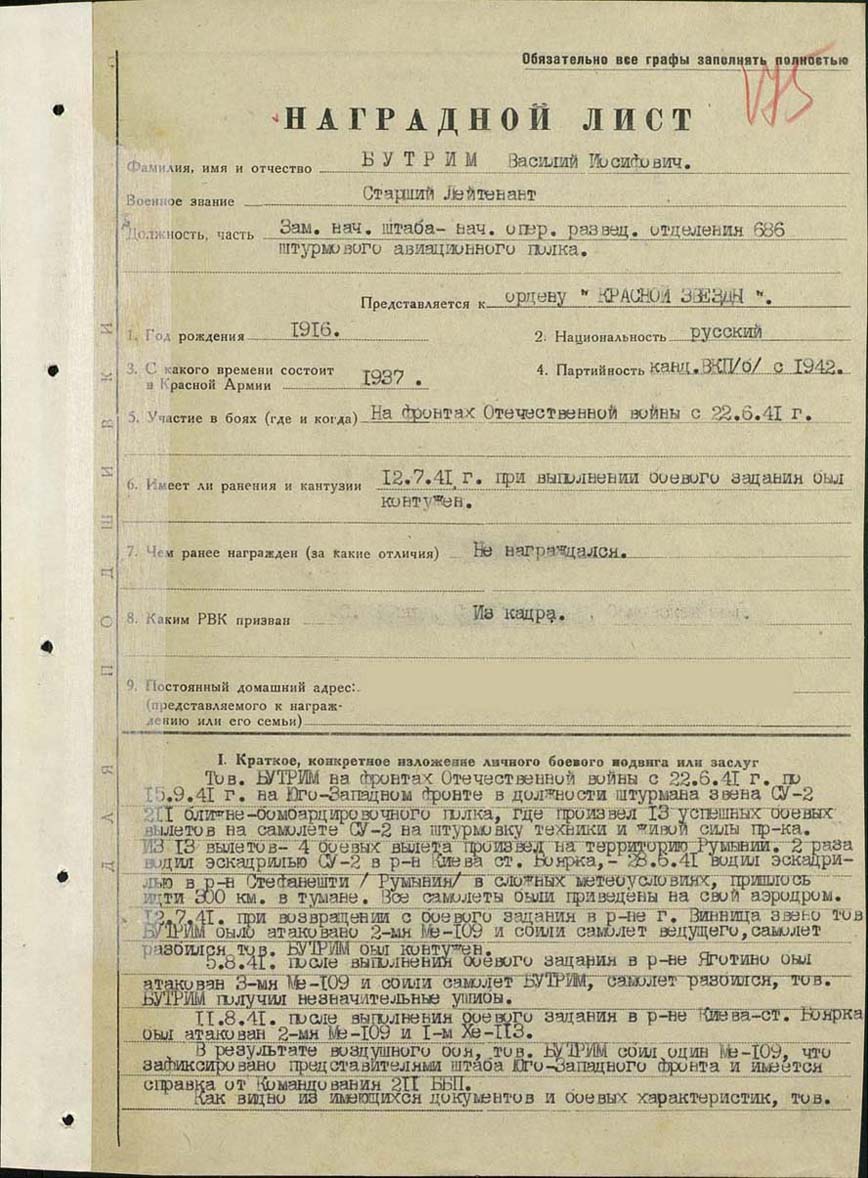 Обязательно все графы заполнять полностью
НАГРАДНОЙ ЛИСТ
Фамилия, имя и отчество БУТРИМ Василий Иосифович.
Военное звание Старший Лейтенант
Должность, часть Зам. нач. штаба- нач. опер. развед. отделения 686
штурмового авиационного полка.
Представляется к ордену " КРАСНОЙ ЗВЕЗДЫ ".
1. Год рождения 1916. 2. Национальность русский
3. С какого времени состоит
в Красной Армии 1937 . 4. Партийность канд.ВКП/б/ с 1942.
5. Участие в боях (где и когда) На фронтах Отечественной войны с 22.6.41 г.
6. Имеет ли ранения и кантузии 12.7.41 г. при выполнении боевого задания был
контужен.
7. Чем ранее награжден (за какие отличия) Не награждался.
8. Каким РВК призван Из кадра.
9. Постоянный домашний адрес:
(представляемого к награж-
дению или его семьи)
ДЛЯ ПОДШИВКИ
I. Краткое, конкретное изложение личного боевого подвига или заслуг
Тов. БУТРИМ на фронтах Отечественной войны с 22.6.41 г. по
15.9.41 г. на Юго-Западном фронте в должности штурмана звена СУ-2
211 ближне-бомбардировочного полка, где произвел 13 успешных боевых
вылетов на самолете СУ-2 на штурмовку техники и живой силы пр-ка.
ИЗ 13 вылетов- 4 боевых вылета произвел на территорию Румынии. 2 раза
водил эскадрилью СУ-2 в р-н Киева ст. Боярка,- 28.6.41 водил эскадри-
лью в р-н Стефанешти / Румыния/ в сложных метеоусловиях, пришлось
идти 300 км. в тумане. Все самолеты были приведены на свой аэродром.
12.7.41. при возвращении с боевого задания в р-не г. Винница звено тов
БУТРИМ было атаковано 2-мя Ме-109 и сбили самолет ведущего,самолет
разбился тов. БУТРИМ был контужен.
5.8.41. после выполнения боевого задания в р-не Яготино был
атакован 3-мя Ме-109 и сбили самолет БУТРИМ, самолет разбился, тов.
БУТРИМ получил незначительные ушибы.
11.8.41. после выполнения боевого задания в р-не Киева-ст. Боярка
был атакован 2-мя Ме-109 и 1-м Хе-113.
В результате воздушного боя, тов. БУТРИМ сбил один Ме-109, что
зафиксировано представителями штаба Юго-Западного фронта и имеется
справка от Командования 211 ББП.
Как видно из имеющихся документов и боевых характеристик, тов.